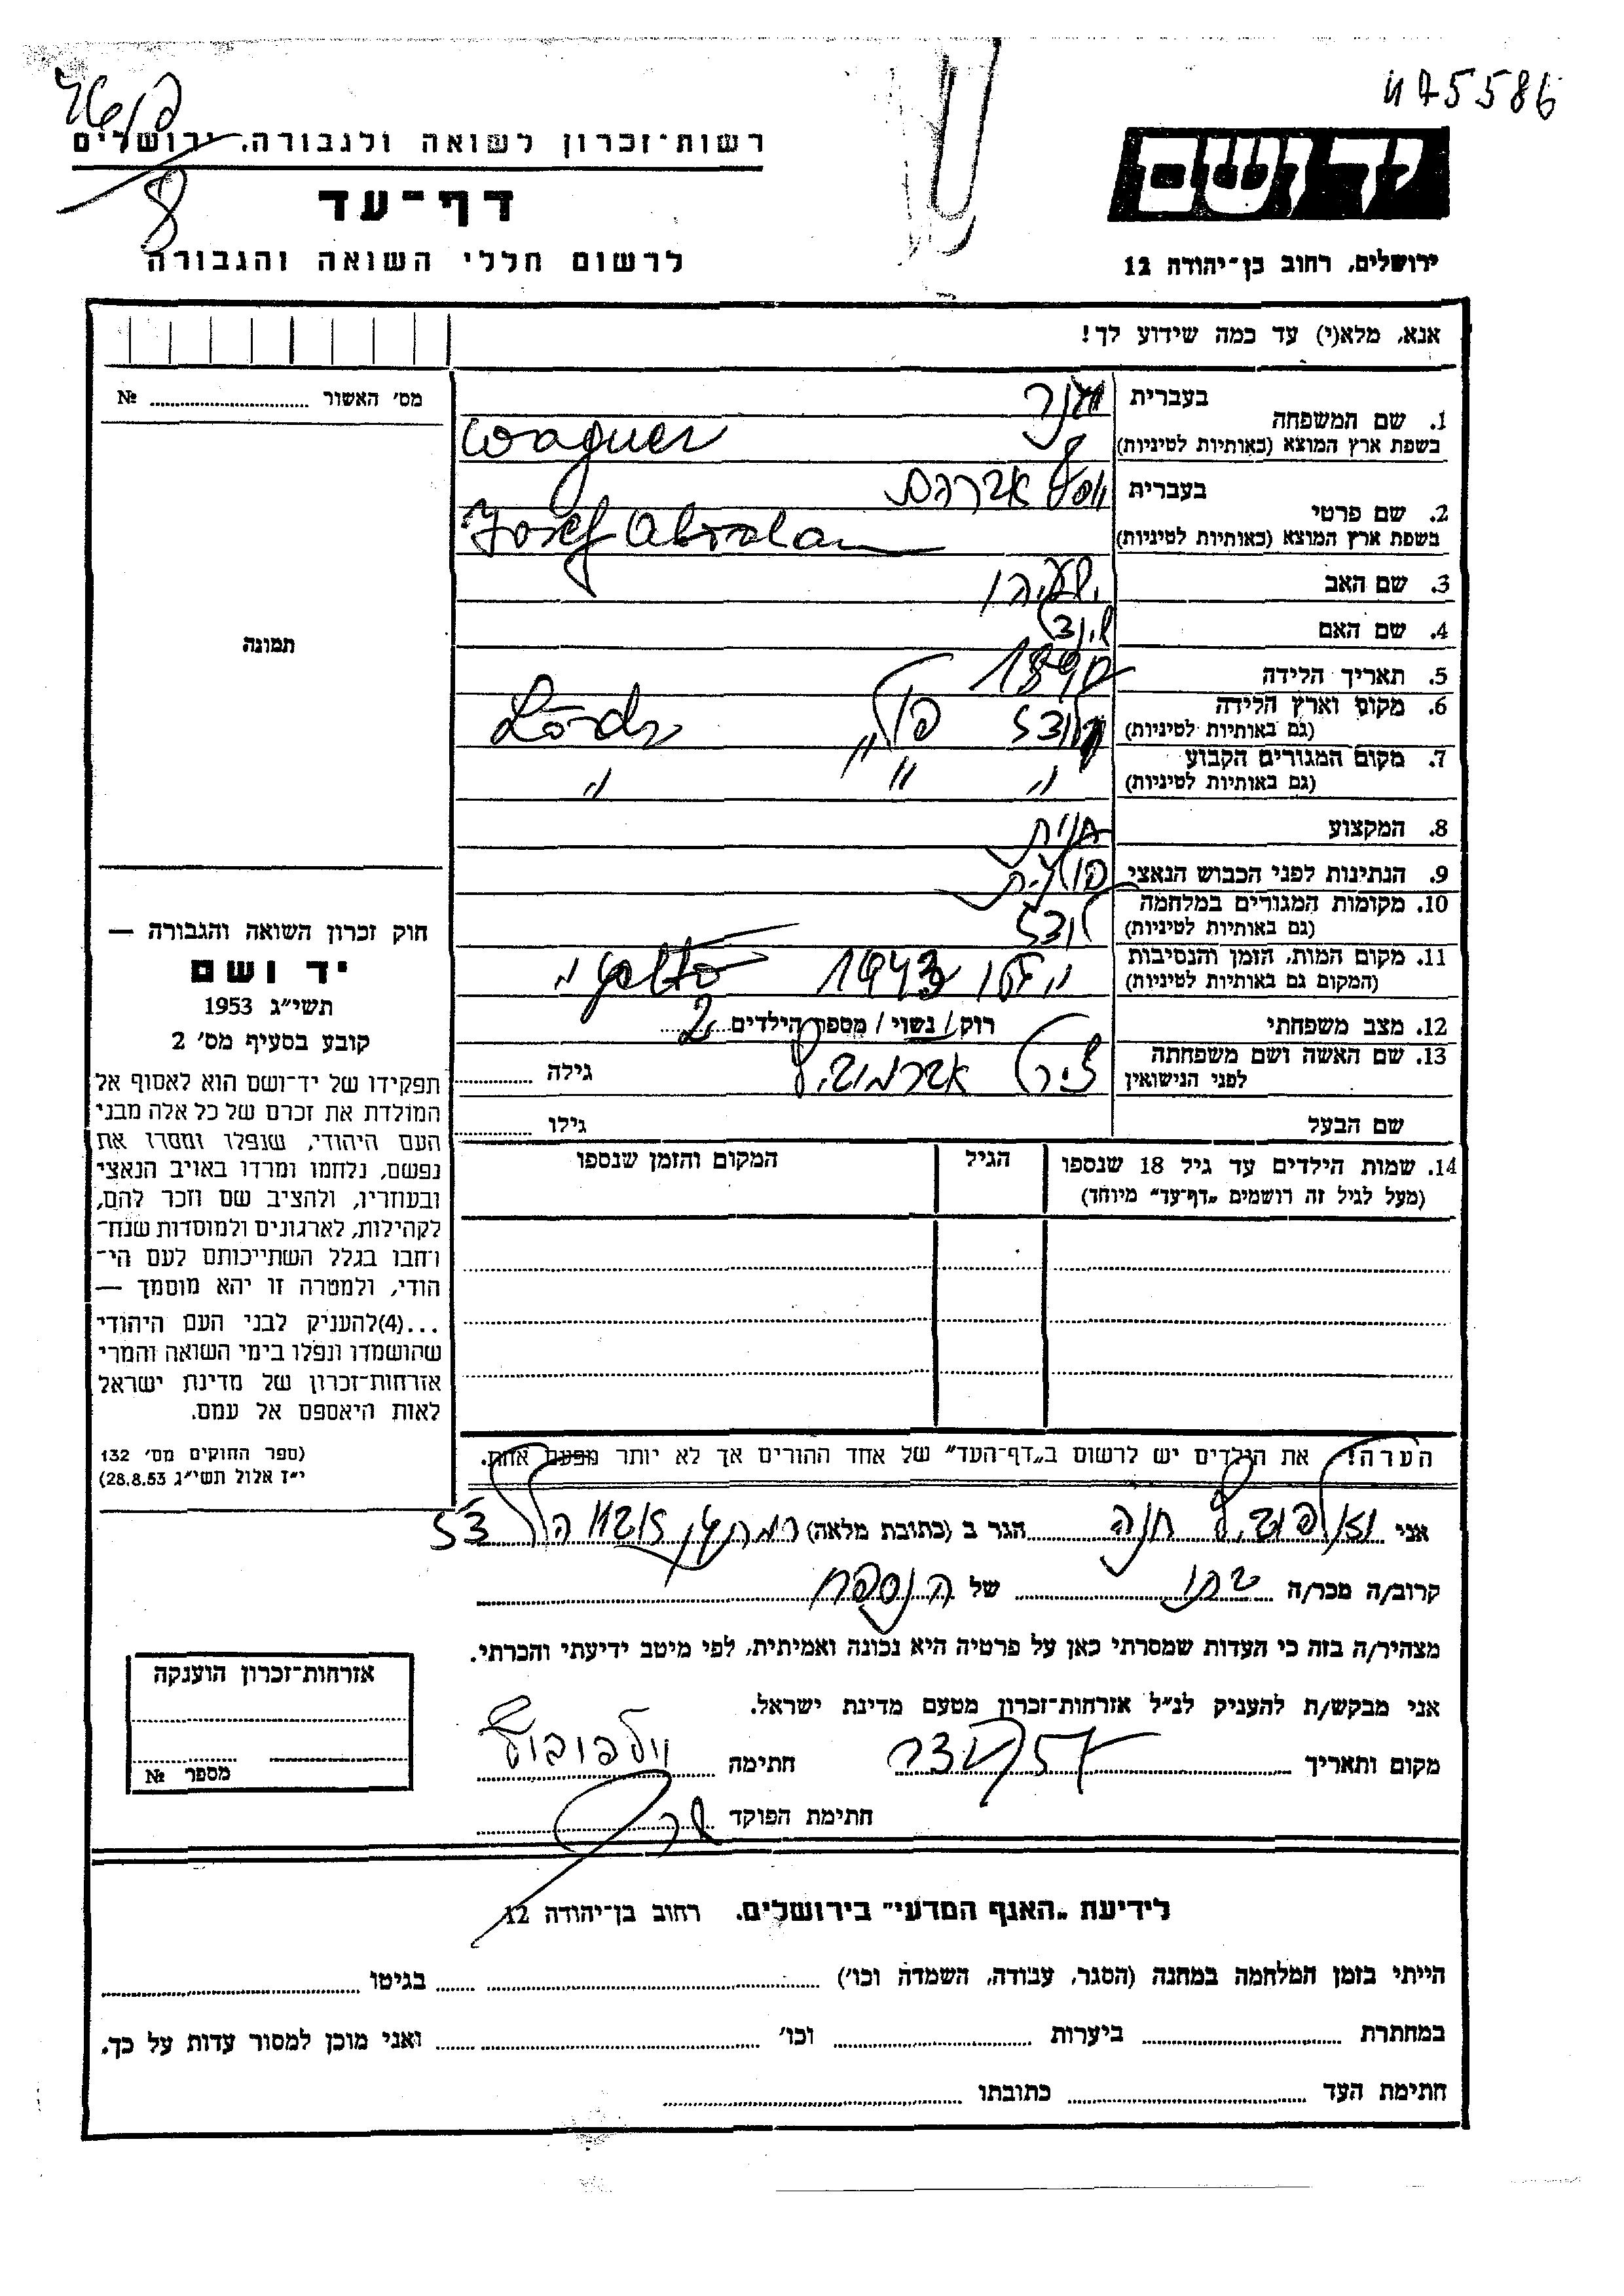 475586
רשות־זכרון לשואה ולגבורה, ירושלים
יד ושם
דף־עד
8
לרשום חללי השואה והגבורה
ירושלים, רחוב בן־יהודה 12
אנא, מלא(י) עד כמה שידוע לך!
מס׳ האשור № 
1. שם המשפחה בעברית וגנר
בשפת ארץ המוצא (באותיות לטיניות) Wagner
2. שם פרטי בעברית יוסף אברהם
בשפת ארץ המוצא (באותיות לטיניות) Josef Abraham
3. שם האב ישעיהו
4. שם האם
5. תאריך הלידה
6. מקום וארץ הלידה (גם באותיות לטיניות) לודז פולין
7. מקום המגורים הקבוע (גם באותיות לטיניות) " " "
8. המקצוע
9. הנתינות לפני הכבוש הנאצי פולנית
10. מקומות המגורים במלחמה (גם באותיות לטיניות) לודז
11. מקום המות, הזמן והנסיבות (המקום גם באותיות לטיניות) 1943
12. מצב משפחתי רוק / נשוי / מספר הילדים 2
13. שם האשה ושם משפחתה לפני הנישואין אברמוביץ גילה
שם הבעל גילו
14. שמות הילדים עד גיל 18 שנספו (מעל לגיל זה רושמים „דף־עד״ מיוחד) הגיל המקום והזמן שנספו
הערה! את הילדים יש לרשום ב„דף־העד״ של אחד ההורים אך לא יותר מפעם אחת.
תמונה
חוק זכרון השואה והגבורה —
יד ושם
תשי״ג 1953
קובע בסעיף מס׳ 2
תפקידו של יד־ושם הוא לאסוף אל
המולדת את זכרם של כל אלה מבני
העם היהודי, שנפלו ומסרו את
נפשם, נלחמו ומרדו באויב הנאצי
ובעוזריו, ולהציב שם וזכר להם,
לקהילות, לארגונים ולמוסדות שנח־
רחבו בגלל השתייכותם לעם הי־
הודי, ולמטרה זו יהא מוסמך —
...(4)להעניק לבני העם היהודי
שהושמדו ונפלו בימי השואה והמרי
אזרחות־זכרון של מדינת ישראל
לאות היאספם אל עמם.
(ספר החוקים מס׳ 132
י״ז אלול תשי״ג 28.8.53)
אני חנה הגר ב (כתובת מלאה)
קרוב/ה מכר/ה בתו של הנספה
מצהיר/ה בזה כי העדות שמסרתי כאן על פרטיה היא נכונה ואמיתית, לפי מיטב ידיעתי והכרתי.
אני מבקש/ת להעניק לנ״ל אזרחות־זכרון מטעם מדינת ישראל.
מקום ותאריך חתימה
חתימת הפוקד
אזרחות־זכרון הוענקה
מספר №
לידיעת „האגף המדעי״ בירושלים. רחוב בן־יהודה 12
הייתי בזמן המלחמה במחנה (הסגר, עבודה, השמדה וכו׳) בגיטו
במחתרת ביערות וכו׳ ואני מוכן למסור עדות על כך.
חתימת העד כתובתו